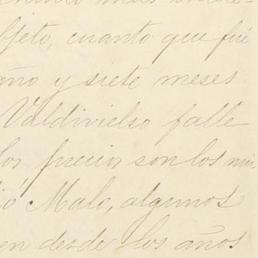 bjeto, cuanto que fué
año y siete meses
Valdivielso falle
los precios son los mis
ó Malo, algunos
en desde los años